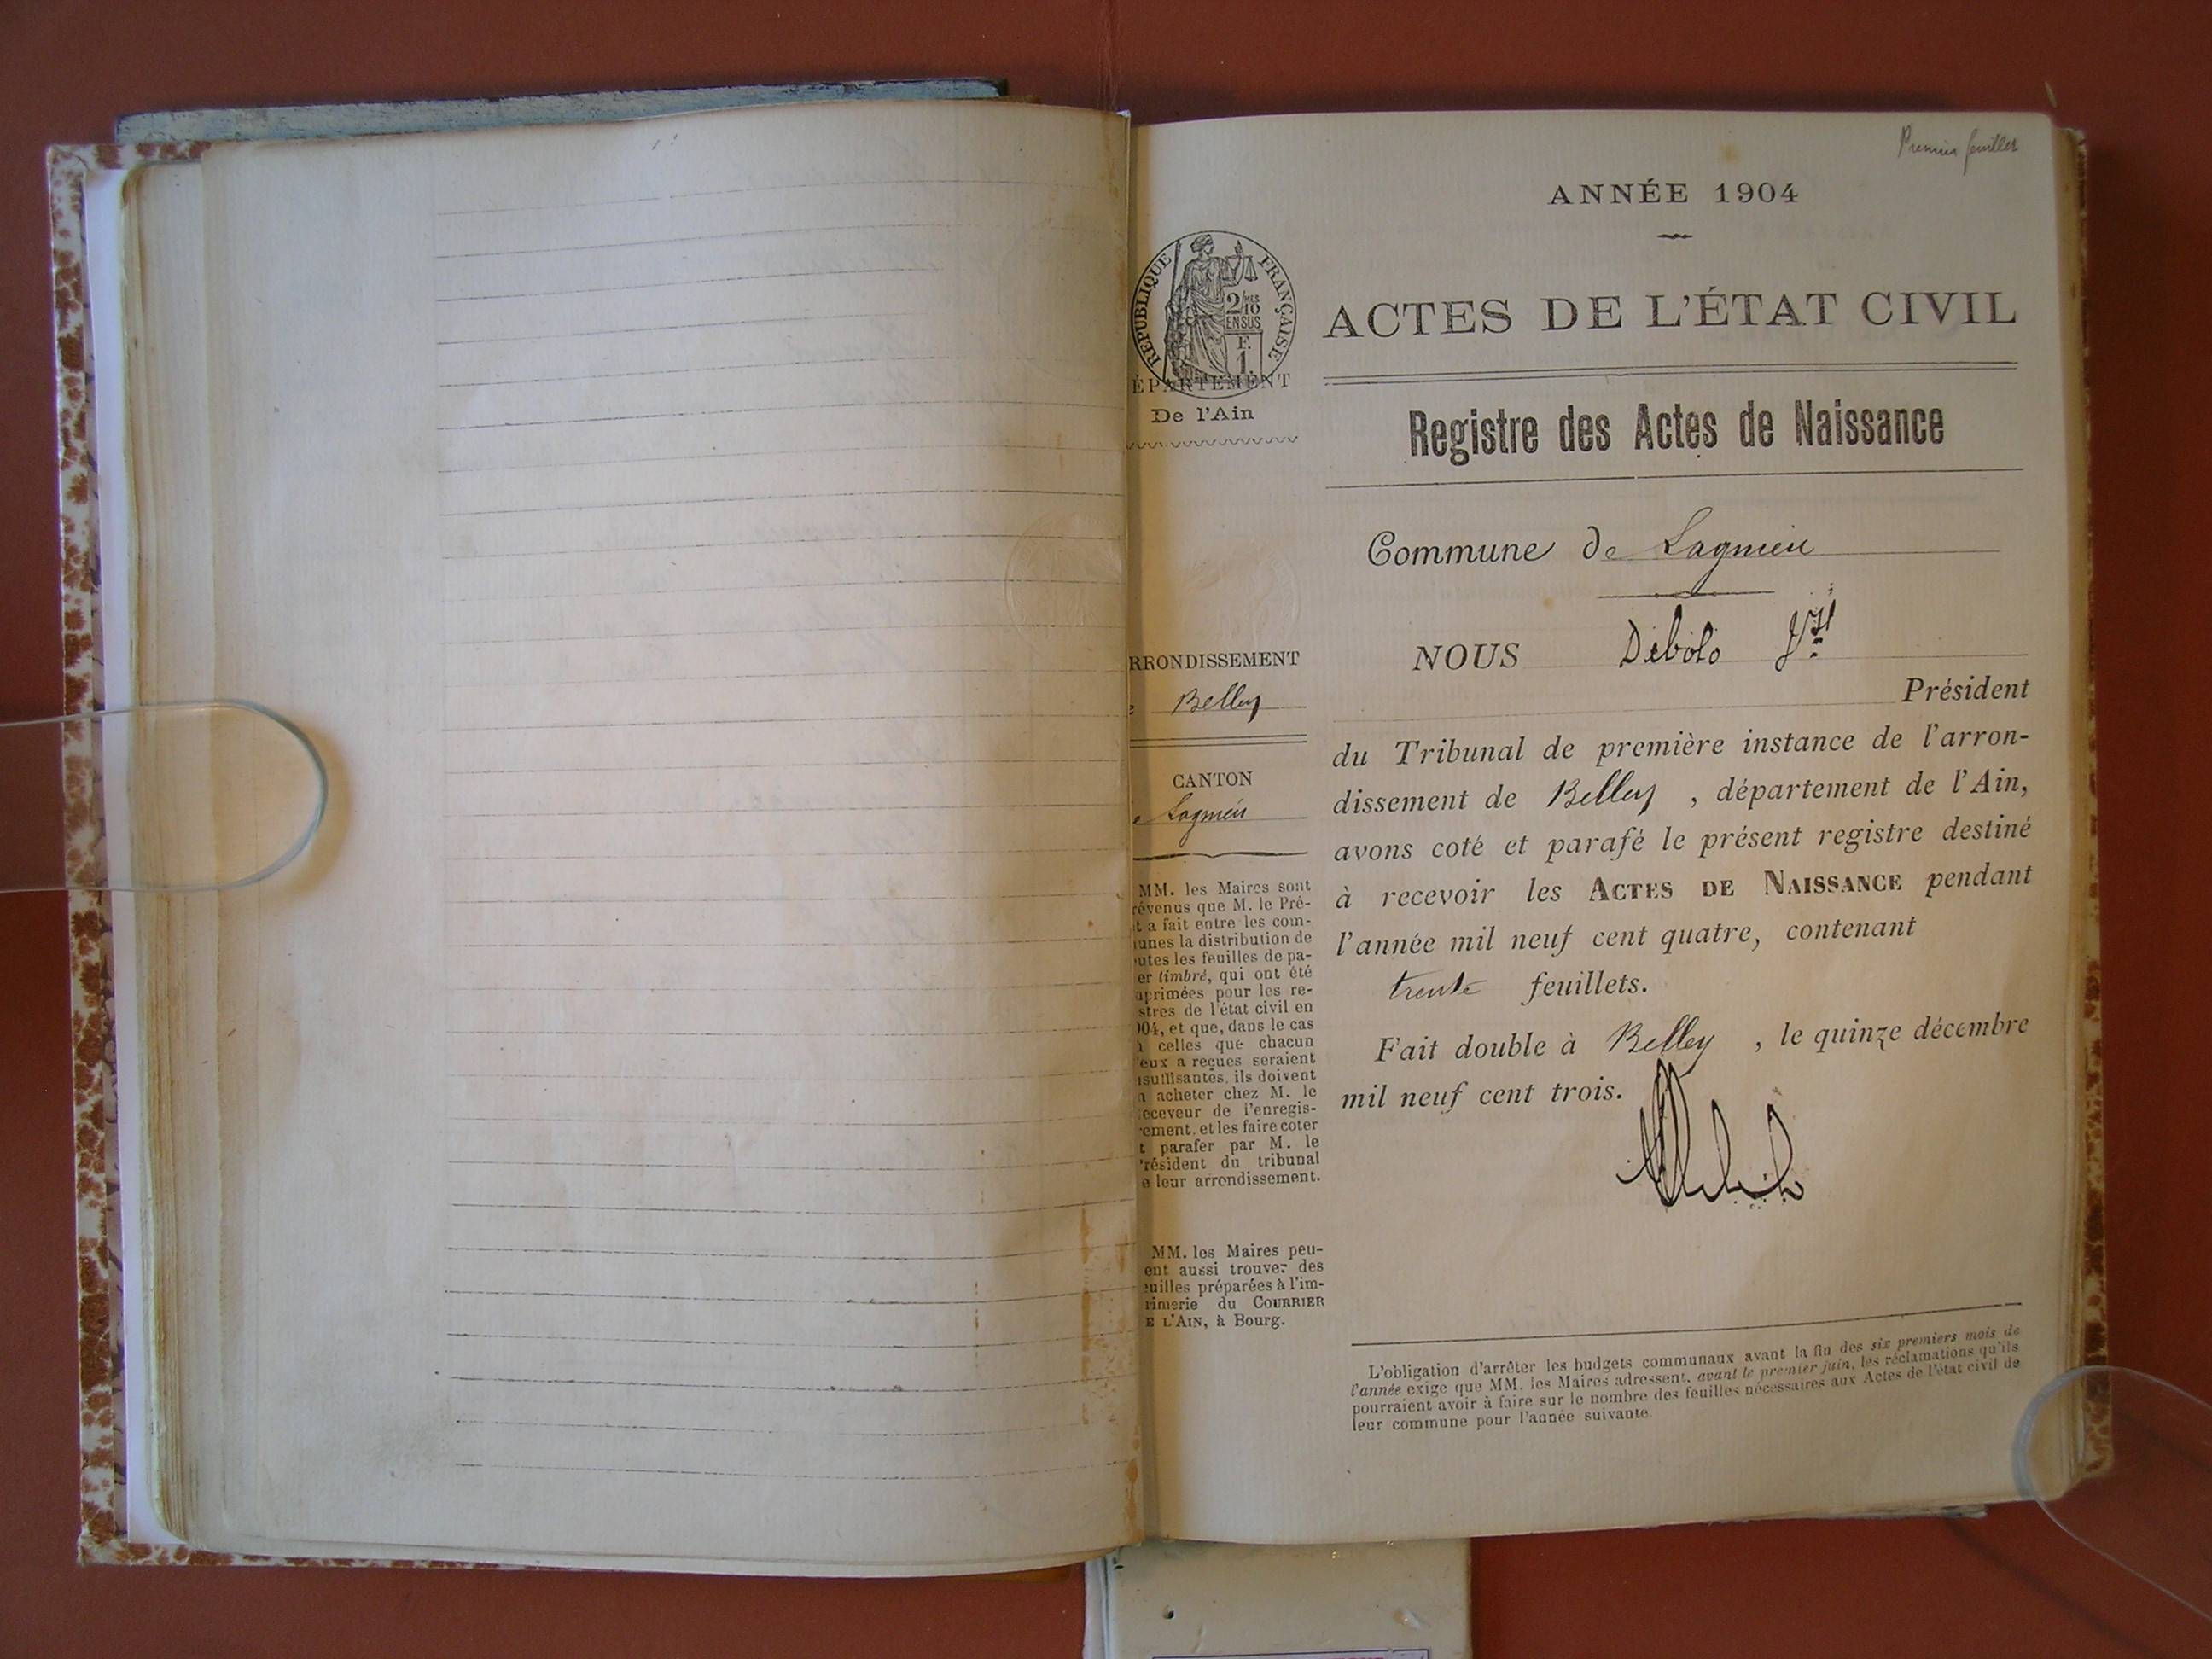 Premier feuillet
ANNÉE 1904
RÉPUBLIQUE FRANÇAISE
2/10MES
EN SUS
F.
1
ÉPARTEMENT
De l'Ain
ACTES DE L'ÉTAT CIVIL
Registre des Actes de Naissance
Commune de Lagnieu
RRONDISSEMENT
Belley
CANTON
Lagnieu
MM. les Maires sont
révenus que M. le Pré-
t a fait entre les com-
unes la distribution de
utes les feuilles de pa-
er timbré, qui ont été
nprimées pour les re-
stres de l'état civil en
904, et que, dans le cas
ù celles que chacun
'eux a reçues seraient
nsuffisantes, ils doivent
n acheter chez M. le
eceveur de l'enregis-
rement, et les faire coter
t parafer par M. le
résident du tribunal
e leur arrondissement.
MM. les Maires peu-
ent aussi trouver des
euilles préparées à l'im-
rimerie du COURRIER
E L'AIN, à Bourg.
NOUS Debolo
Président
du Tribunal de première instance de l'arron-
dissement de Belley , département de l'Ain,
avons coté et parafé le présent registre destiné
à recevoir les ACTES DE NAISSANCE pendant
l'année mil neuf cent quatre, contenant
trente feuillets.
Fait double à Belley , le quinze décembre
mil neuf cent trois.
L'obligation d'arrêter les budgets communaux avant la fin des six premiers mois de
l'année exige que MM. les Maires adressent, avant le premier juin, les réclamations qu'ils
pourraient avoir à faire sur le nombre des feuilles nécessaires aux Actes de l'état civil de
leur commune pour l'année suivante.